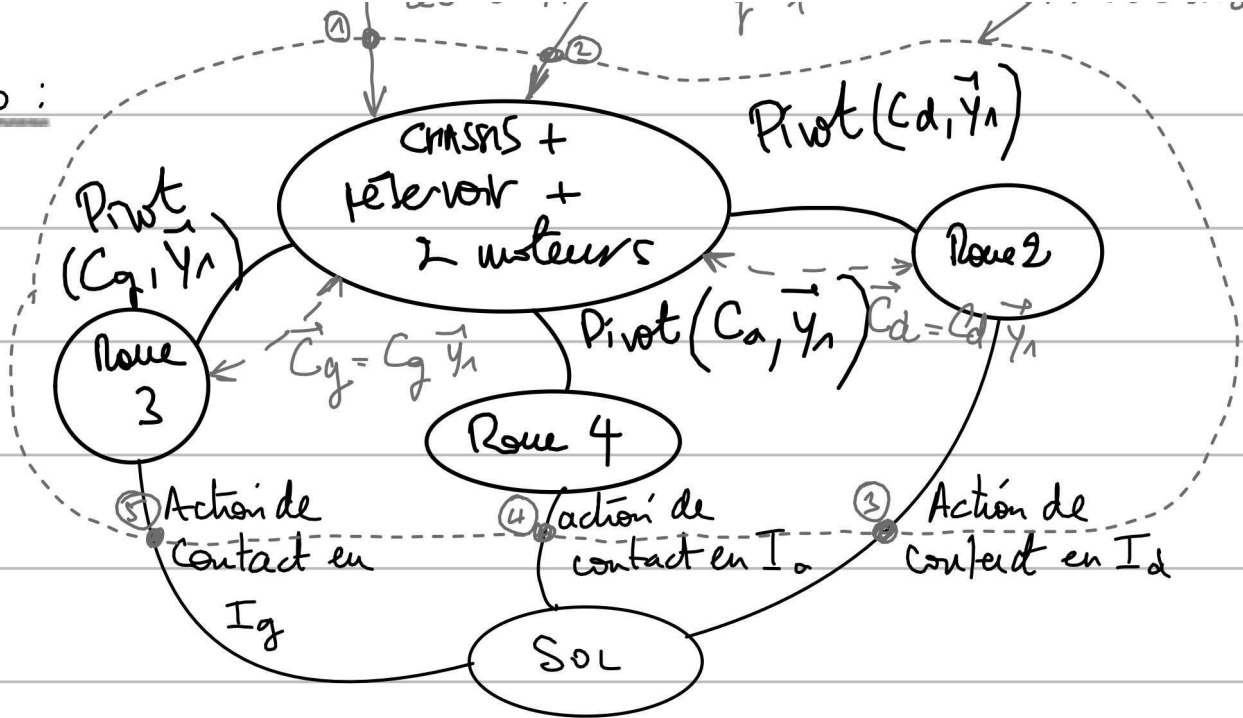 ①
②
:
CHASSIS +
réservoir +
2 moteurs
Pivot (Cd, y1)
Pivot
(Cg, y1)
Roue 2
Roue
3
Cg = Cg y1
Pivot (Ca, y1)
Cd = Cd y1
Roue 4
⑤ Action de
contact en
Ig
④ action de
contact en Ia
③ Action de
contact en Id
SOL